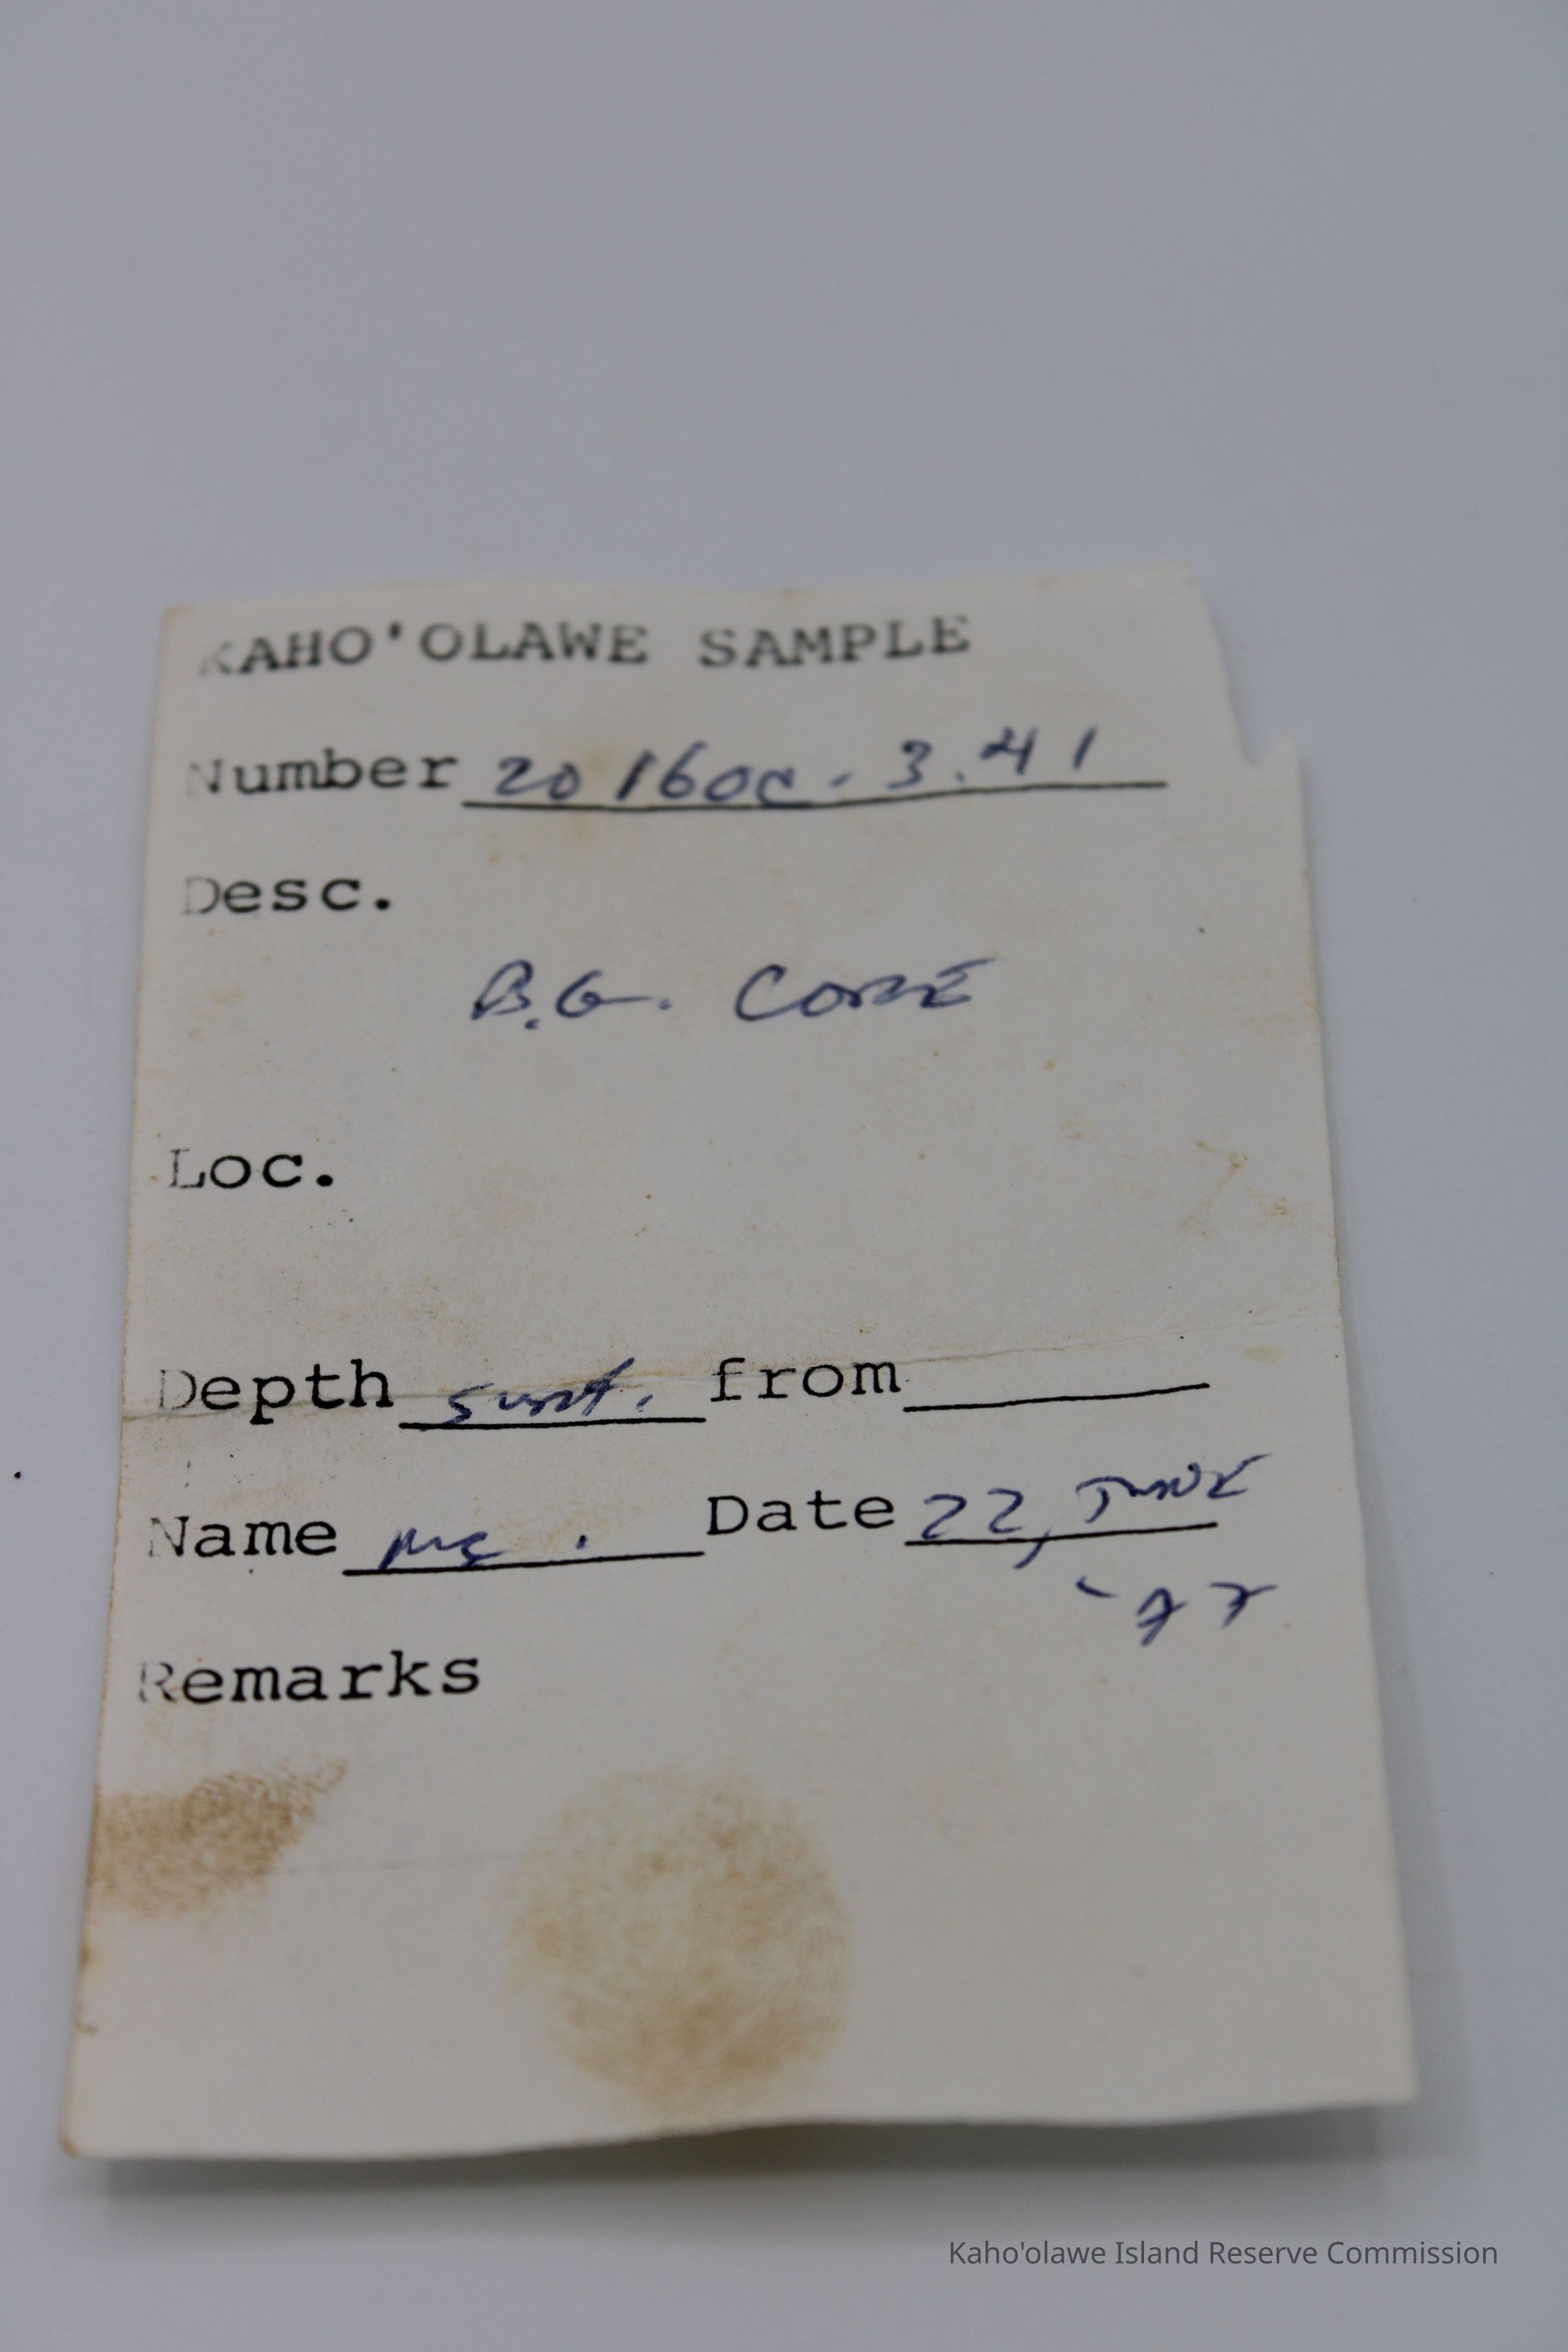 KAHO'OLAWE SAMPLE
Number 20160c-3.41
Desc.
B.G. CORE
Loc.
Depth surf. from
Name Date 22, JUNE
'77
Remarks
Kaho'olawe Island Reserve Commission